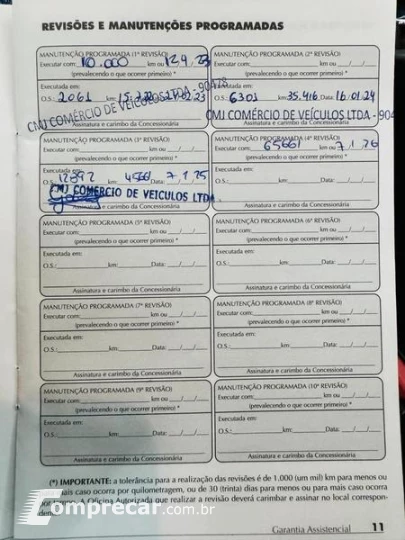 REVISÕES E MANUTENÇÕES PROGRAMADAS
MANUTENÇÃO PROGRAMADA (1ª REVISÃO)
Executar com: 10.000 km ou 12.9.23
(prevalecendo o que ocorrer primeiro) *
Executada em:
O.S.: 2061 km: Data: 23
CMJ COMÉRCIO DE VEÍCULOS LTDA - 90478
Assinatura e carimbo da Concessionária
MANUTENÇÃO PROGRAMADA (2ª REVISÃO)
Executar com: km ou
(prevalecendo o que ocorrer primeiro) *
Executada em:
O.S.: 6301 km: 35.416 Data: 16.01.24
CMJ COMÉRCIO DE VEÍCULOS LTDA - 904
Assinatura e carimbo da Concessionária
MANUTENÇÃO PROGRAMADA (3ª REVISÃO)
Executar com: km ou
(prevalecendo o que ocorrer primeiro) *
Executada em:
O.S. km: Data: 7.1.25
CMJ COMÉRCIO DE VEÍCULOS LTDA
Assinatura e carimbo da Concessionária
MANUTENÇÃO PROGRAMADA (4ª REVISÃO)
Executar com: 65661 km ou 7.1.26
(prevalecendo o que ocorrer primeiro) *
Executada em:
O.S.: km: Data:
Assinatura e carimbo da Concessionária
MANUTENÇÃO PROGRAMADA (5ª REVISÃO)
Executar com: km ou
(prevalecendo o que ocorrer primeiro) *
Executada em:
O.S.: km: Data:
Assinatura e carimbo da Concessionária
MANUTENÇÃO PROGRAMADA (6ª REVISÃO)
Executar com: km ou
(prevalecendo o que ocorrer primeiro) *
Executada em:
O.S.: km: Data:
Assinatura e carimbo da Concessionária
MANUTENÇÃO PROGRAMADA (7ª REVISÃO)
Executar com: km ou
(prevalecendo o que ocorrer primeiro) *
Executada em:
O.S.: km: Data:
Assinatura e carimbo da Concessionária
MANUTENÇÃO PROGRAMADA (8ª REVISÃO)
Executar com: km ou
(prevalecendo o que ocorrer primeiro) *
Executada em:
O.S.: km: Data:
Assinatura e carimbo da Concessionária
MANUTENÇÃO PROGRAMADA (9ª REVISÃO)
Executar com: km ou
(prevalecendo o que ocorrer primeiro) *
Executada em:
O.S.: km: Data:
Assinatura e carimbo da Concessionária
MANUTENÇÃO PROGRAMADA (10ª REVISÃO)
Executar com: km ou
(prevalecendo o que ocorrer primeiro) *
Executada em:
O.S.: km: Data:
Assinatura e carimbo da Concessionária
(*) IMPORTANTE: a tolerância para a realização das revisões é de 1.000 (um mil) km para menos ou
mais caso ocorra por quilometragem, ou de 30 (trinta) dias para menos ou para mais caso ocorra
por tempo. A Oficina Autorizada que realizar a revisão deverá carimbar e assinar no local correspon-
dente.
Comprecar.com.br
Garantia Assistencial 11